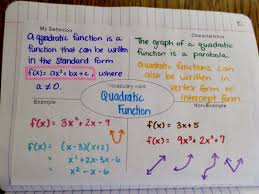 My Definition
A quadratic function is a
function that can be written
in the standard form
f(x) = ax² + bx + c, where
a ≠ 0.
Characteristics
The graph of a quadratic
function is a parabola.
Quadratic functions can
also be written in
vertex form or
intercept form.
Vocabulary Word
Quadratic
Function
Example
f(x) = 3x² + 2x - 9
f(x) = (x-3)(x+2)
= x² + 2x - 3x - 6
= x² - x - 6
Non-Example
f(x) = 3x + 5
f(x) = 9x³ + 2x² + 7